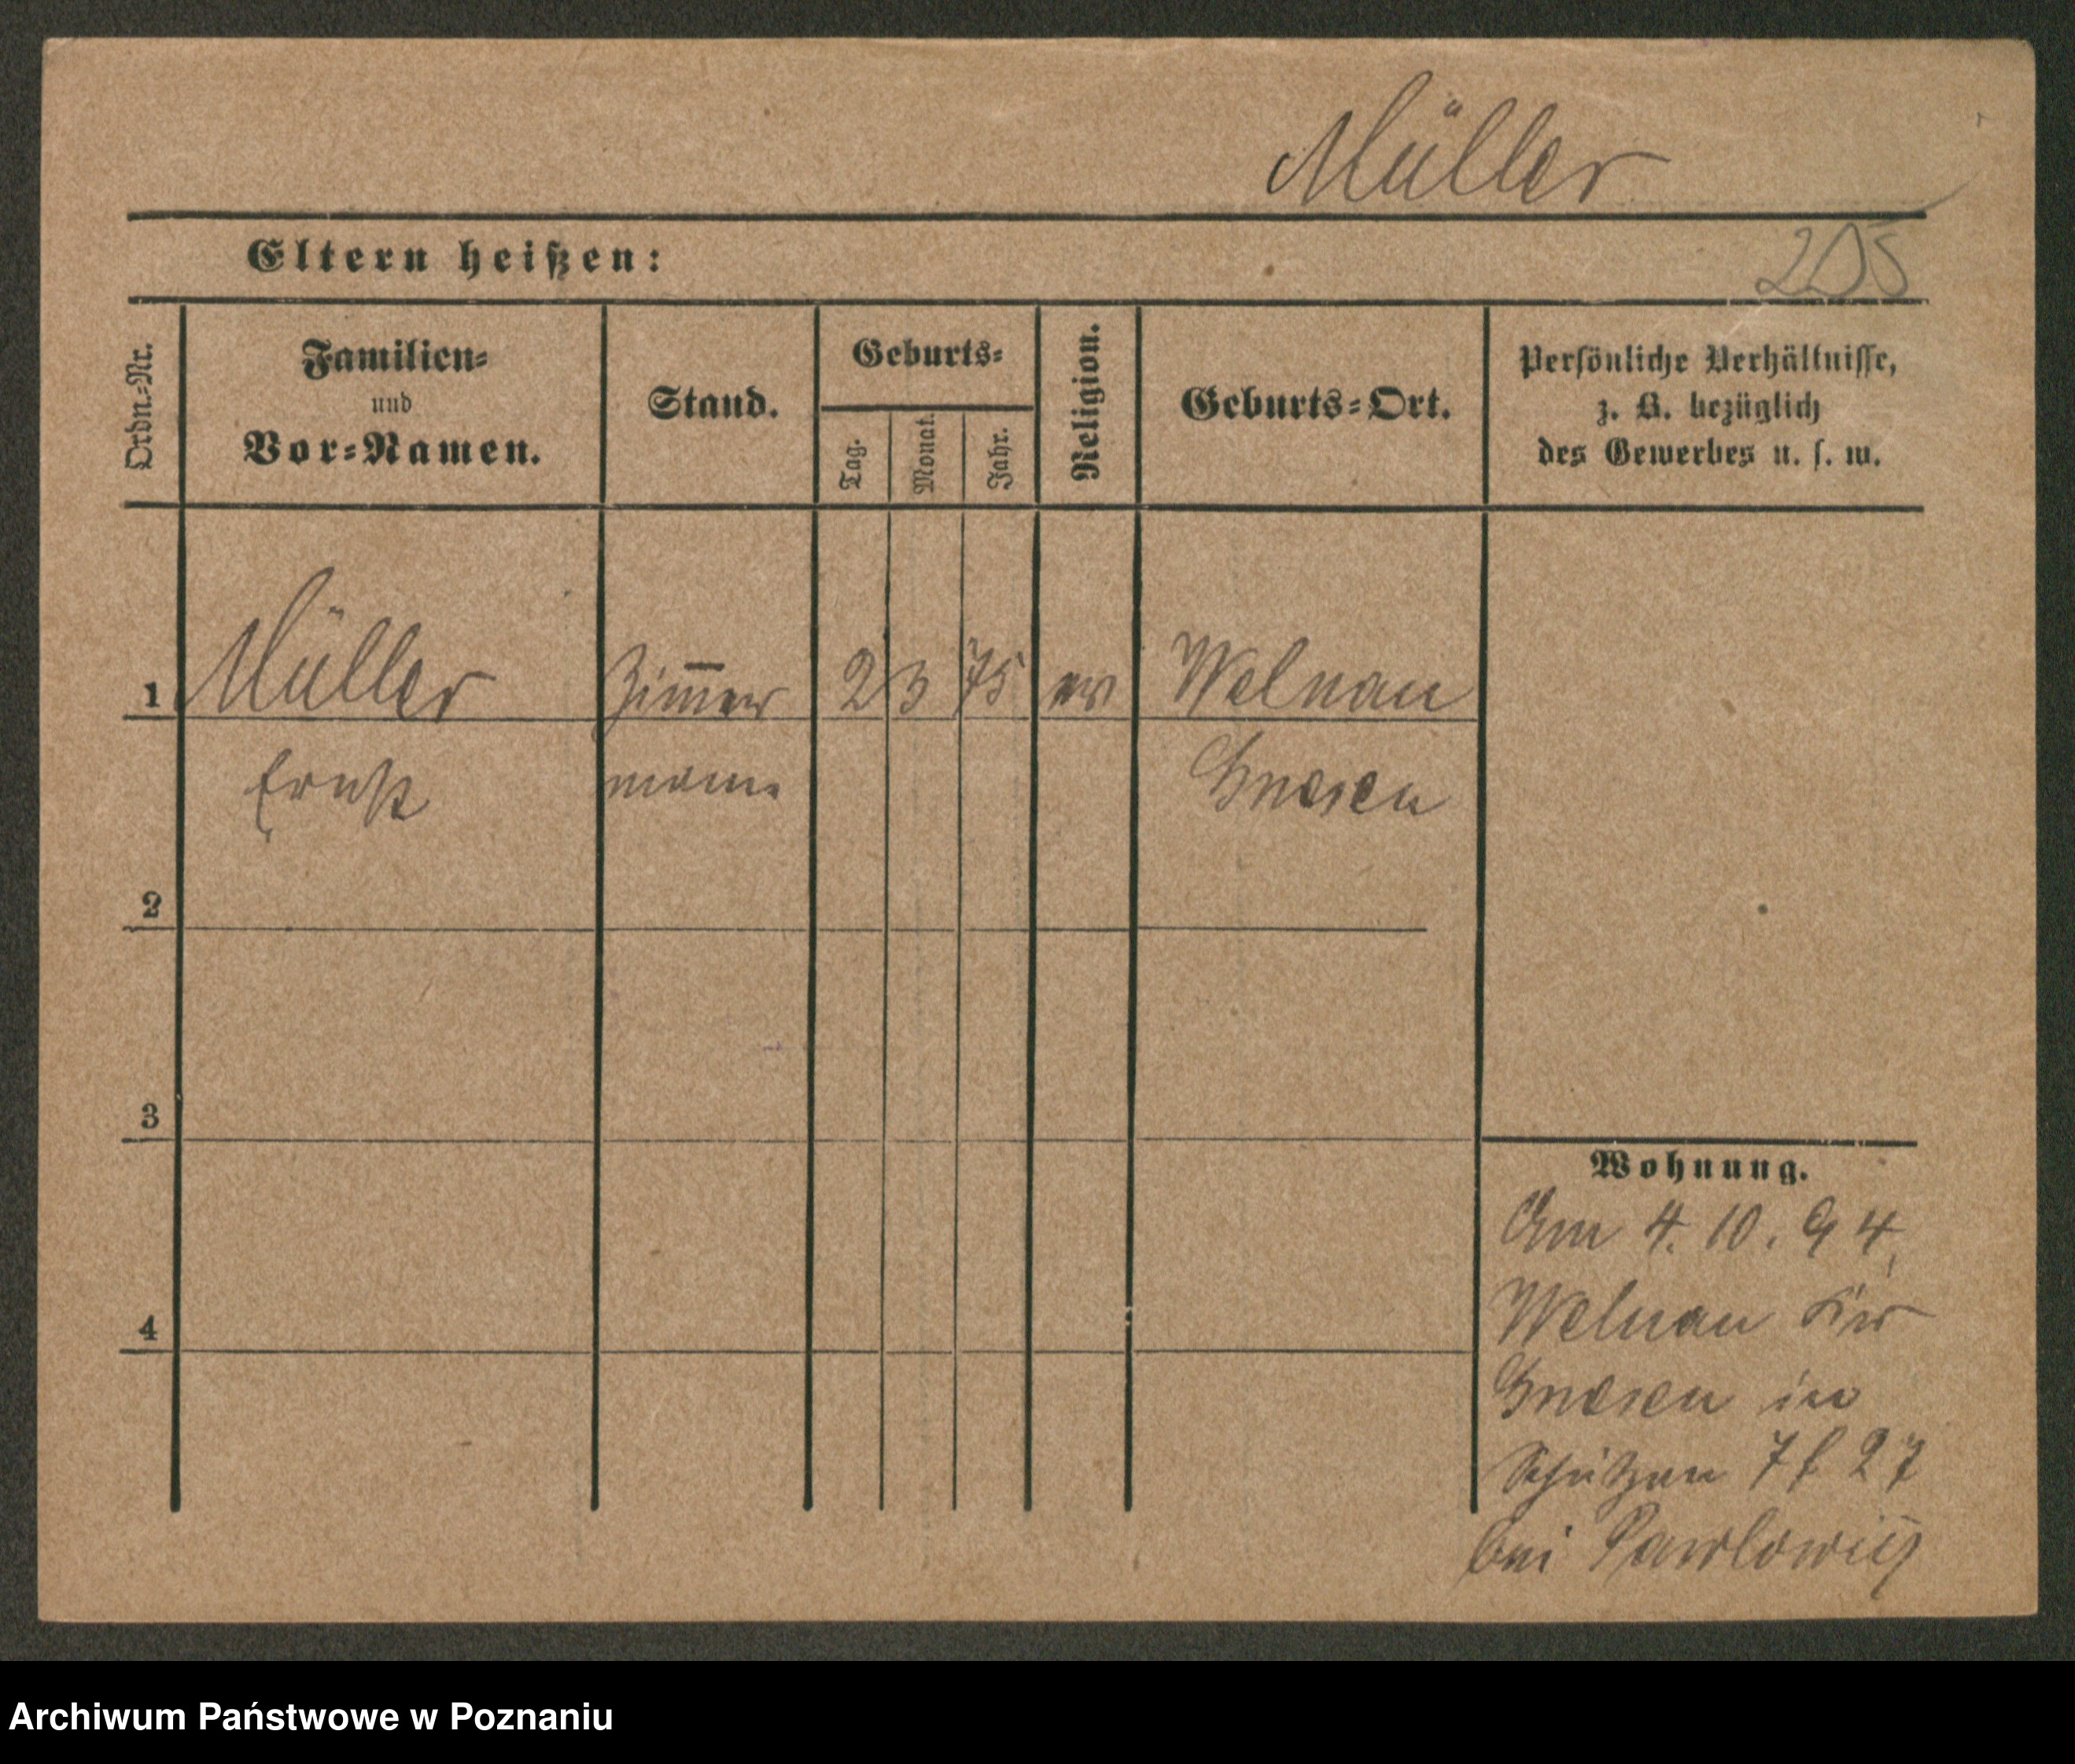 Müller
Eltern heißen:
205
Ordn.=Nr.
Familien=
und
Vor=Namen.
Stand.
Geburts=
Tag.
Monat.
Jahr.
Religion.
Geburts=Ort.
Persönliche Verhältnisse,
z. B. bezüglich
des Gewerbes u. s. w.
1 Müller Zim̅er 2 3 75 ev Welnau
Ernst mann Gnesen
2
3
4
Wohnung.
Am 4. 10. 94
Welnau
Gnesen in
Schützen 7 f 27
bei Pawlowicz
Archiwum Państwowe w Poznaniu